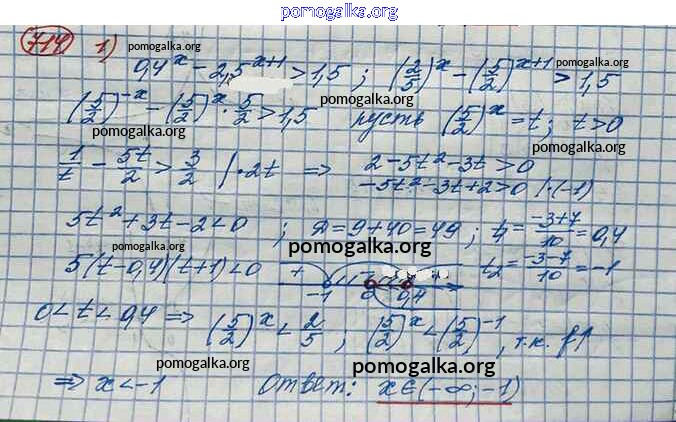 pomogalka.org
714 1) pomogalka.org
0,4^x - 2,5^{x+1} > 1,5 ; (2/5)^x - (5/2)^{x+1} > 1,5 pomogalka.org
(5/2)^{-x} - (5/2)^x · 5/2 > 1,5 пусть (5/2)^x = t; t > 0
pomogalka.org pomogalka.org
1/t - 5t/2 > 3/2 | · 2t ⇒ 2 - 5t² - 3t > 0
pomogalka.org
-5t² - 3t + 2 > 0 | · (-1)
5t² + 3t - 2 < 0 ; Д = 9 + 40 = 49 ; t₁ = (-3+7)/10 = 0,4
pomogalka.org pomogalka.org
5(t - 0,4)(t + 1) < 0 + -1 0 0,4 t₂ = (-3-7)/10 = -1
0 < t < 0,4 ⇒ (5/2)^x < 2/5 ; (5/2)^x < (5/2)^{-1} , т.к. f↑
pomogalka.org pomogalka.org
⇒ x < -1 Ответ: x ∈ (-∞; -1)
pomogalka.org pomogalka.org